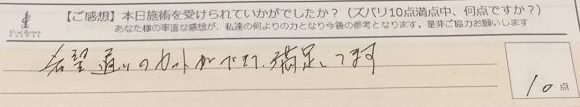 【ご感想】本日施術を受けられていかがでしたか？（ズバリ10点満点中、何点ですか？）
あなた様の率直な感想が、私達の何よりの力となり今後の参考となります。是非ご協力お願いします
希望通りのカットができ、満足してます
10点